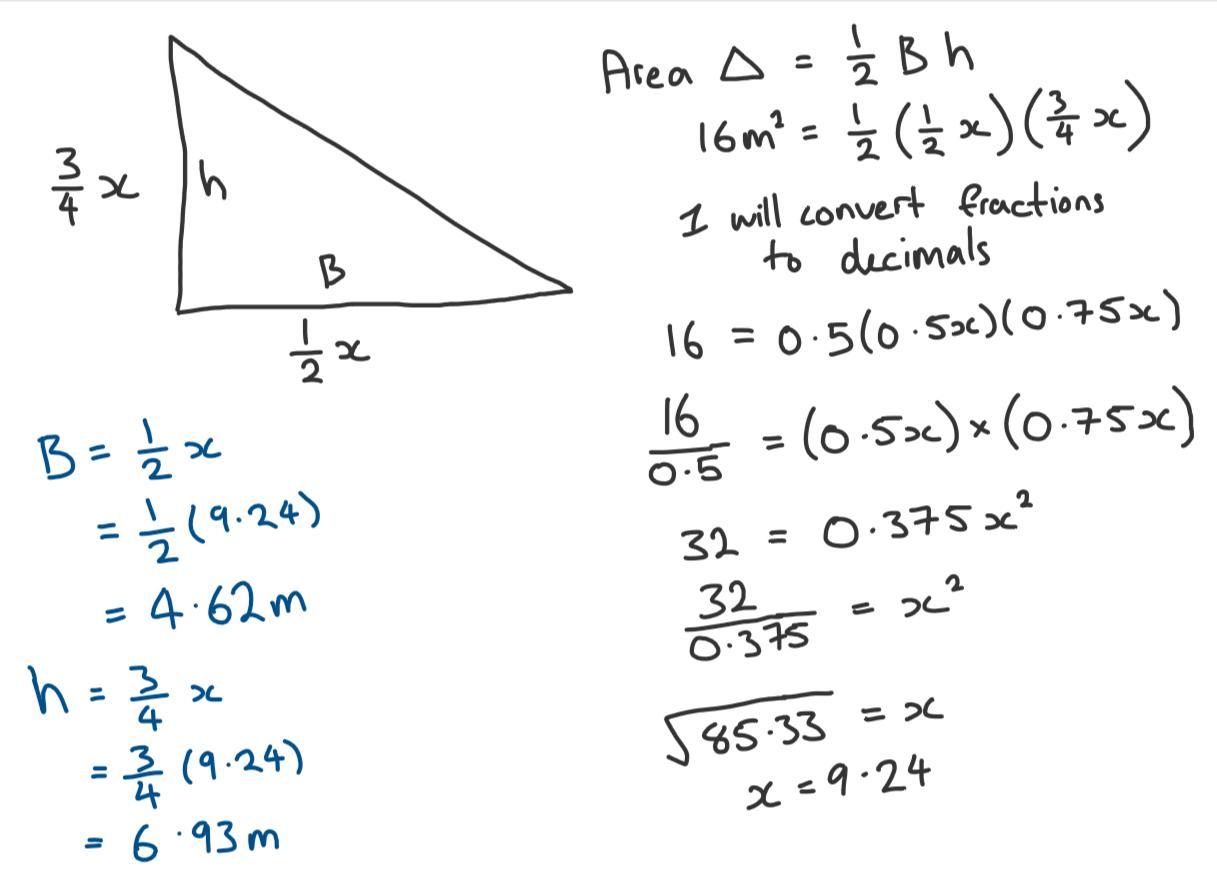 3/4 x
h
B
1/2 x
B = 1/2 x
= 1/2 (9.24)
= 4.62m
h = 3/4 x
= 3/4 (9.24)
= 6.93m
Area △ = 1/2 B h
16m² = 1/2 (1/2 x)(3/4 x)
I will convert fractions
to decimals
16 = 0.5(0.5x)(0.75x)
16/0.5 = (0.5x)×(0.75x)
32 = 0.375x²
32/0.375 = x²
√85.33 = x
x = 9.24